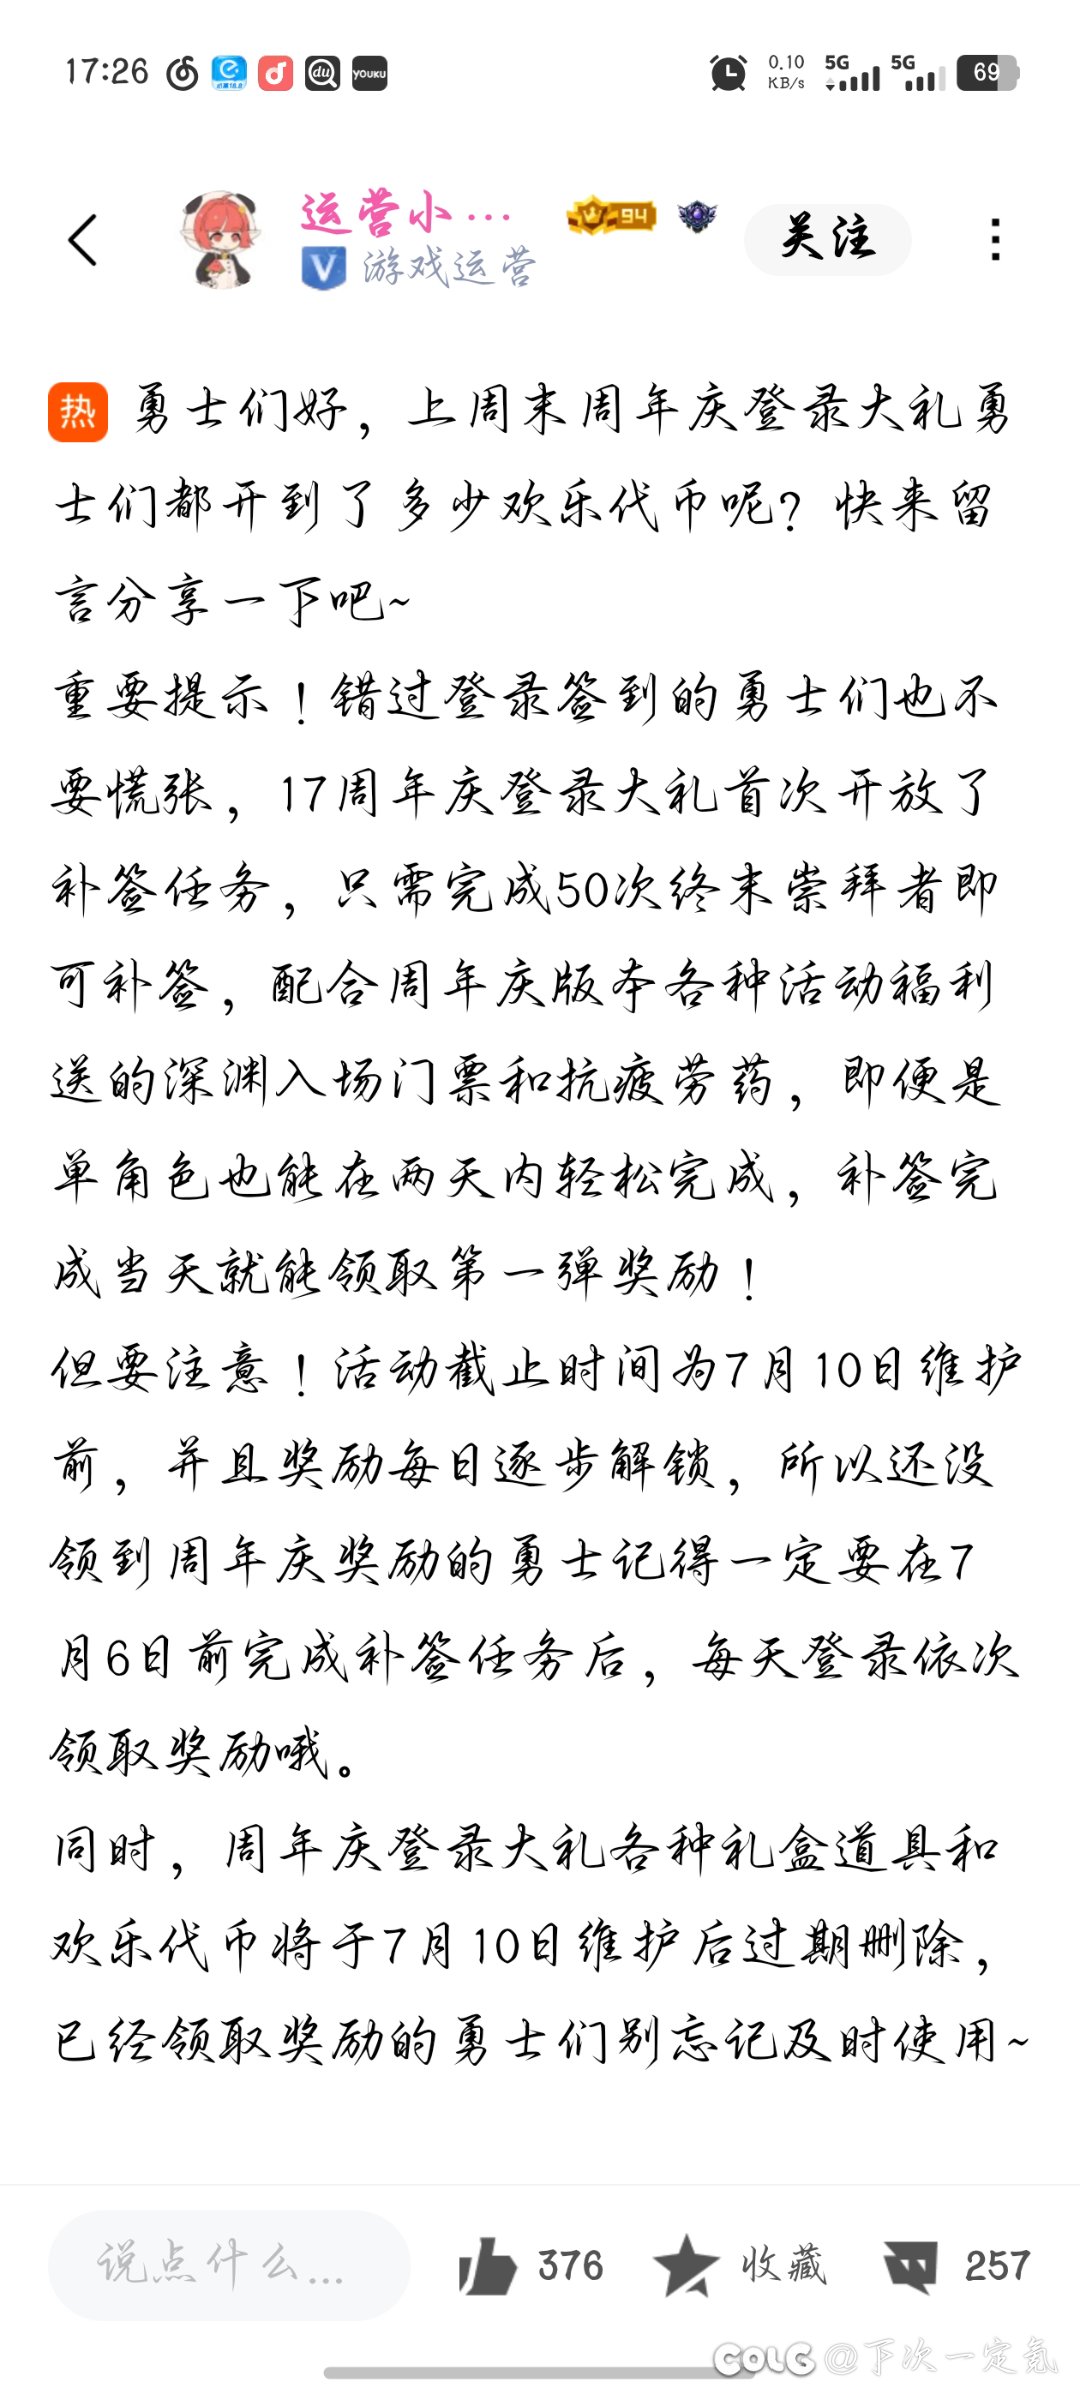 17:26
du
YOUKU
0.10
KB/s
5G
5G
69
运营小...
94
V 游戏运营
关注
热 勇士们好，上周末周年庆登录大礼勇
士们都开到了多少欢乐代币呢？快来留
言分享一下吧~
重要提示！错过登录签到的勇士们也不
要慌张，17周年庆登录大礼首次开放了
补签任务，只需完成50次终末崇拜者即
可补签，配合周年庆版本各种活动福利
送的深渊入场门票和抗疲劳药，即便是
单角色也能在两天内轻松完成，补签完
成当天就能领取第一弹奖励！
但要注意！活动截止时间为7月10日维护
前，并且奖励每日逐步解锁，所以还没
领到周年庆奖励的勇士记得一定要在7
月6日前完成补签任务后，每天登录依次
领取奖励哦。
同时，周年庆登录大礼各种礼盒道具和
欢乐代币将于7月10日维护后过期删除，
已经领取奖励的勇士们别忘记及时使用~
说点什么...
376
收藏
257
COLG @下次一定氪